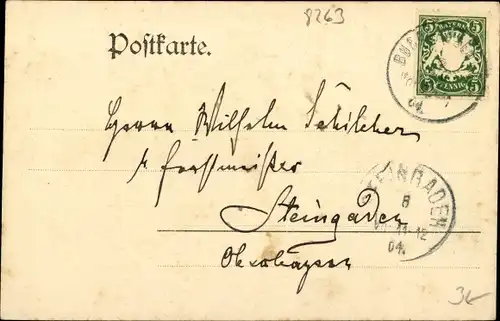 8263
Postkarte.
BAYERN
5 5
PFENNIG
04.
Herrn Wilhelm Schilcher
k. Forstmeister
Steingaden
Oberbayern
STEINGADEN
8
11-12
04.
3€